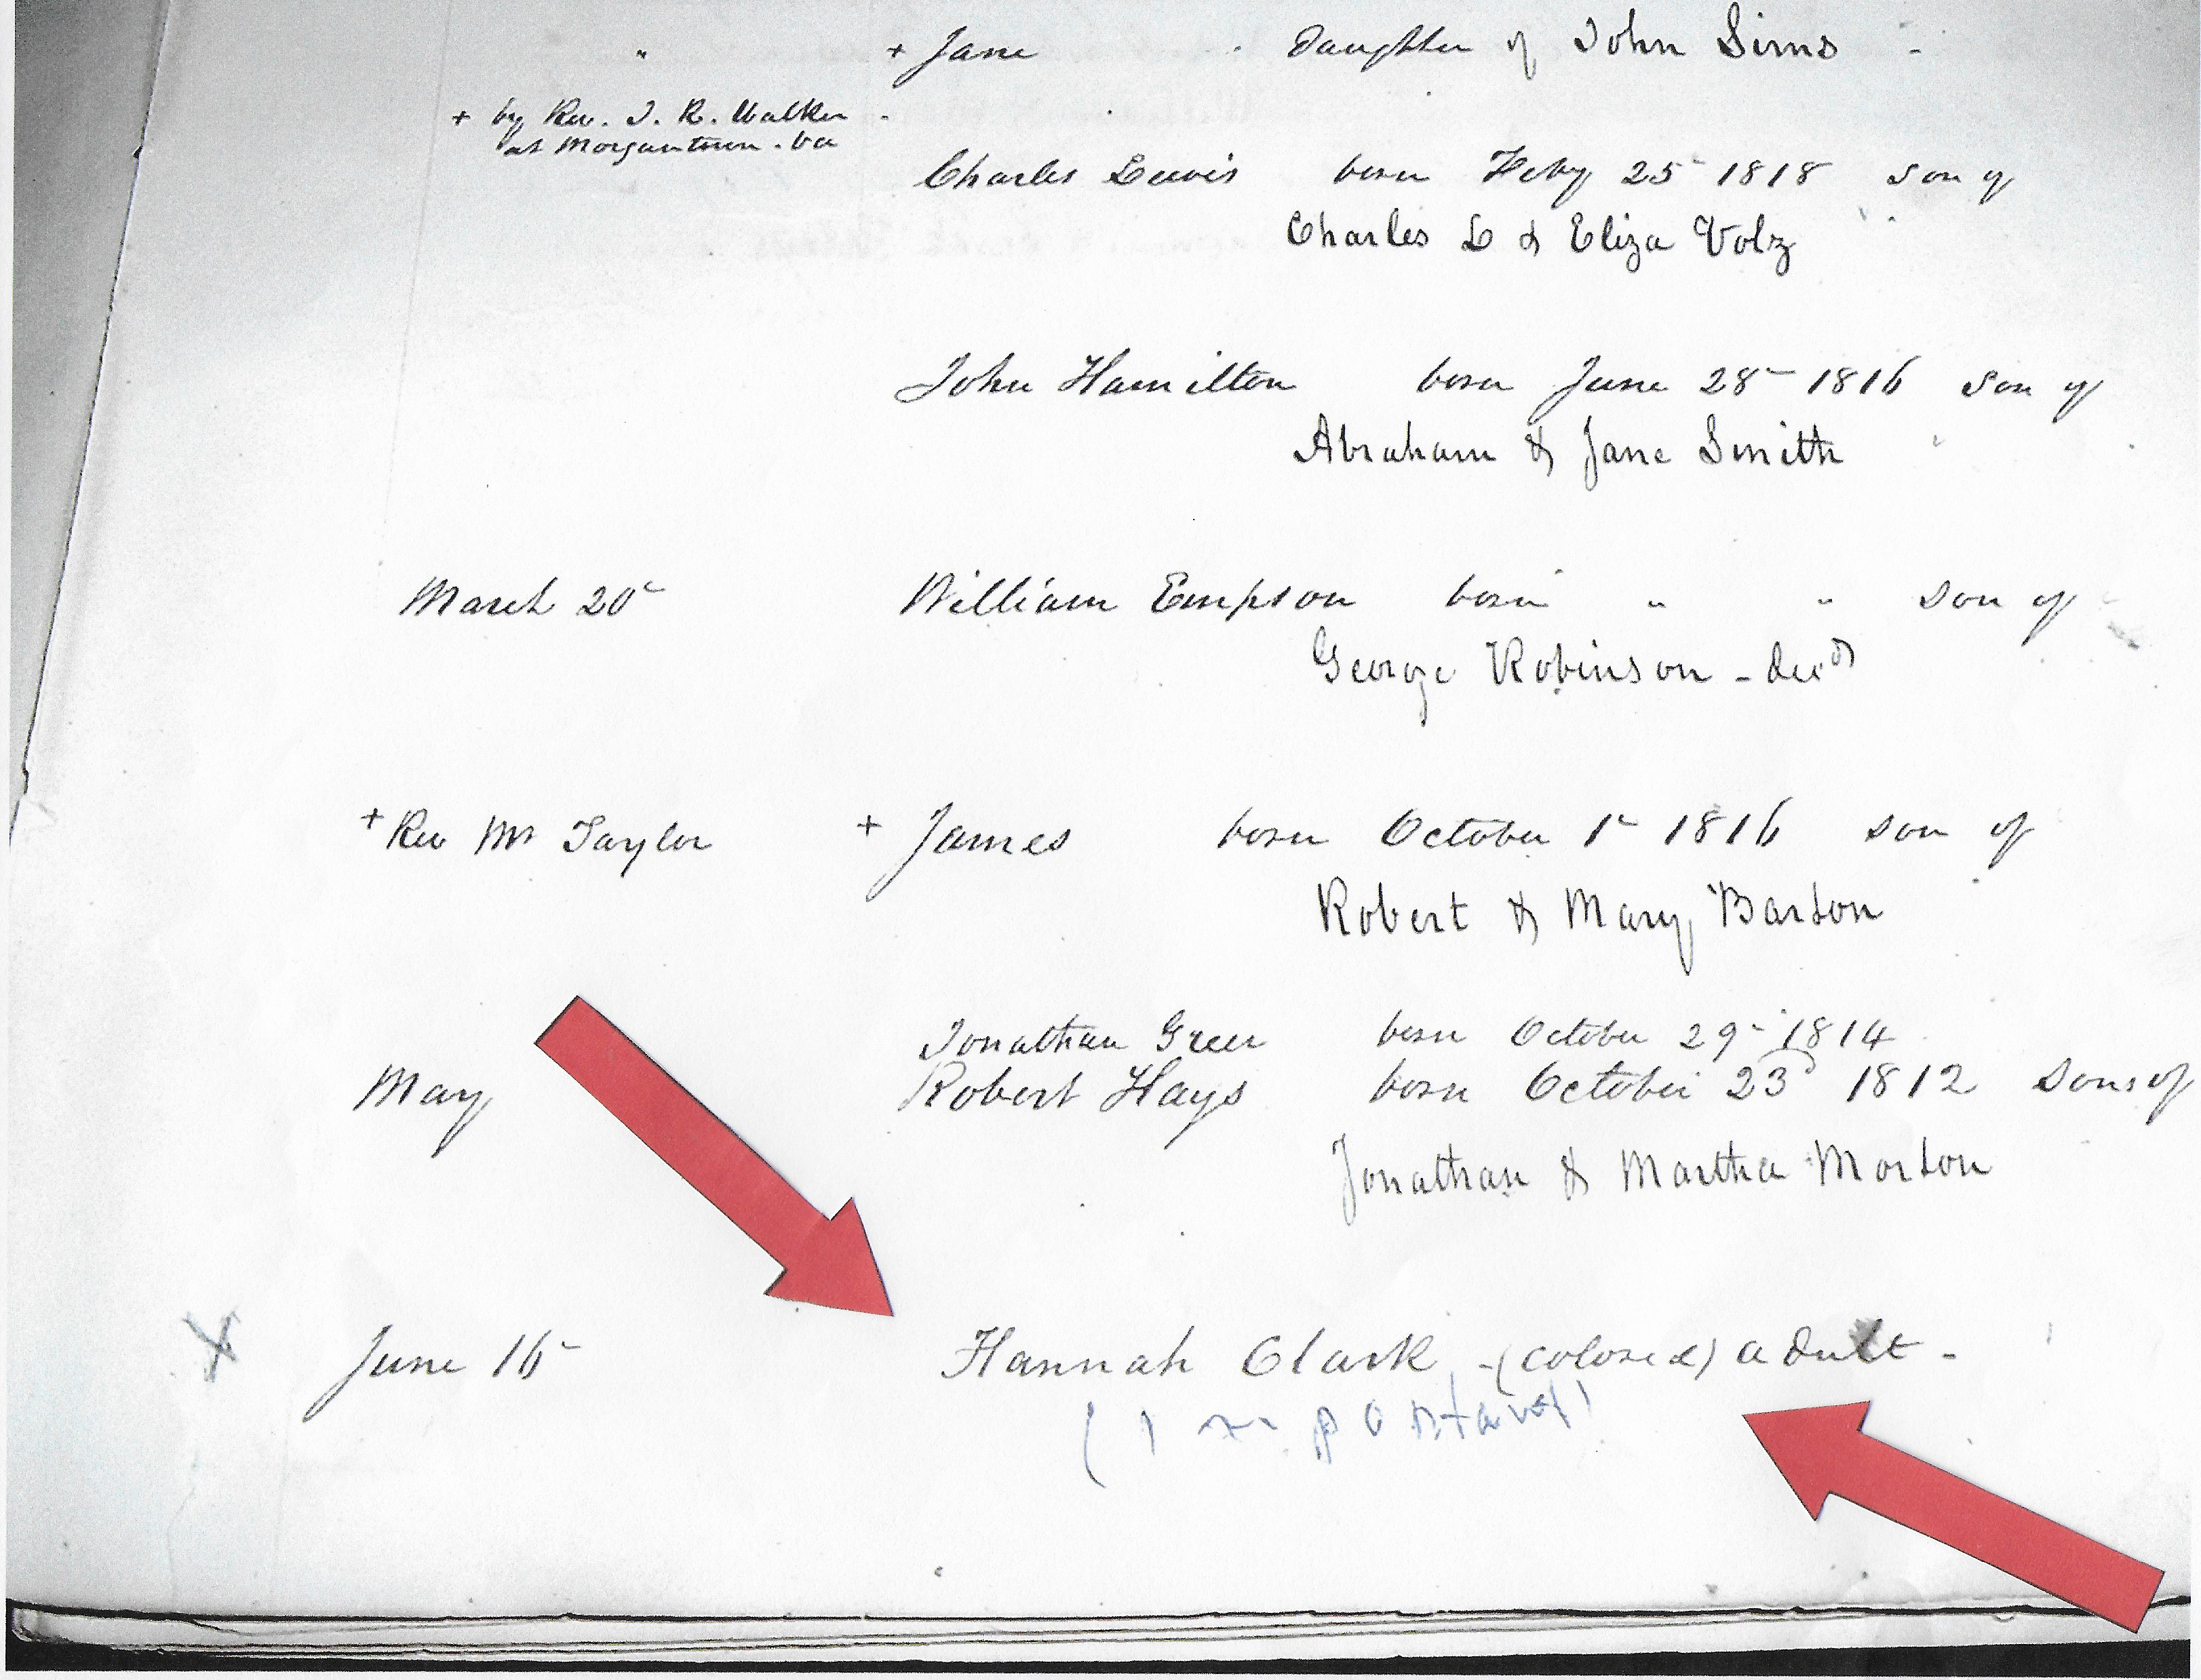 " + Jane . Daughter of John Sims -
+ by Rev. J. R. Walker -
at Morgantown . Va
Charles Lewis born Feby 25 1818 son of
Charles L & Eliza Volz
John Hamilton born June 28 1816 son of
Abraham & Jane Smith
March 20 William Empson born " " son of
George Robinson - decd
+ Rev Mr Taylor + James born October 1 1816 son of
Robert & Mary Barton
Jonathan Greer born October 29 1814
May Robert Hays born October 23d 1812 sons of
Jonathan & Martha Morton
X June 16 Hannah Clark - (colored) adult -